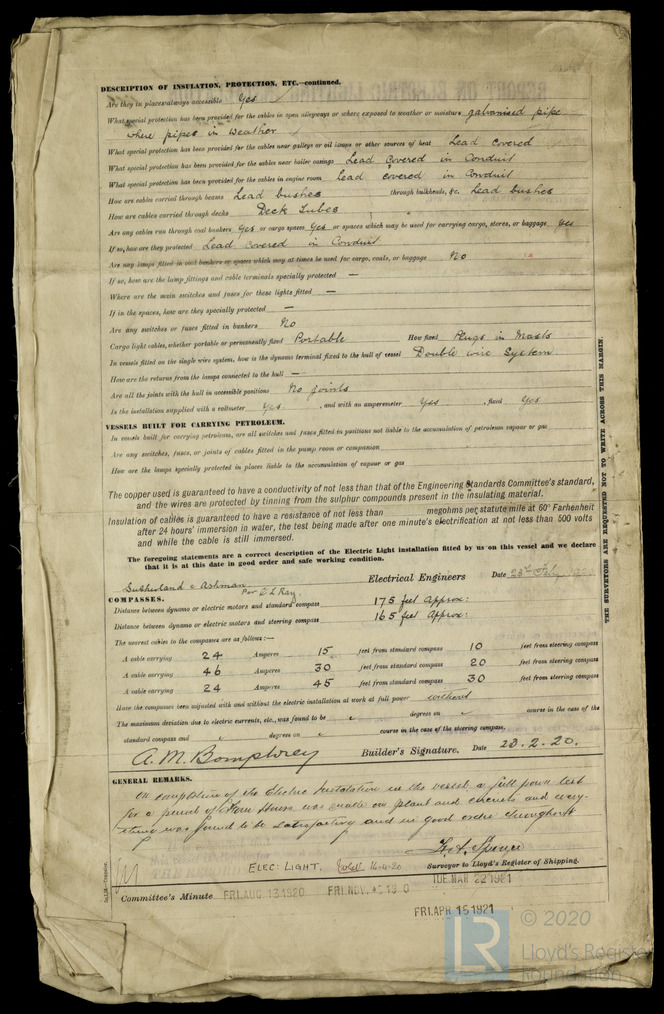 DESCRIPTION OF INSULATION, PROTECTION, ETC.—continued.
Are they in places always accessible Yes
What special protection has been provided for the cables in open alleyways or where exposed to weather or moisture galvanised pipe
where pipes in weather
What special protection has been provided for the cables near galleys or oil lamps or other sources of heat Lead covered
What special protection has been provided for the cables near boiler casings Lead Covered in Conduit
What special protection has been provided for the cables in engine room Lead covered in Conduit
How are cables carried through beams Lead bushes through bulkheads, &c. Lead bushes
How are cables carried through decks Deck Tubes
Are any cables run through coal bunkers Yes or cargo spaces Yes or spaces which may be used for carrying cargo, stores, or baggage Yes
If so, how are they protected Lead Covered in Conduit
Are any lamps fitted in coal bunkers or spaces which may at times be used for cargo, coals, or baggage No
If so, how are the lamp fittings and cable terminals specially protected —
Where are the main switches and fuses for these lights fitted —
If in the spaces, how are they specially protected —
Are any switches or fuses fitted in bunkers No
Cargo light cables, whether portable or permanently fixed Portable How fixed Plugs in Masts
In vessels fitted on the single wire system, how is the dynamo terminal fixed to the hull of vessel Double wire System
How are the returns from the lamps connected to the hull —
Are all the joints with the hull in accessible positions No joints
Is the installation supplied with a voltmeter Yes , and with an amperemeter Yes , fixed Yes
VESSELS BUILT FOR CARRYING PETROLEUM.
In vessels built for carrying petroleum, are all switches and fuses fitted in positions not liable to the accumulation of petroleum vapour or gas
Are any switches, fuses, or joints of cables fitted in the pump room or companion
How are the lamps specially protected in places liable to the accumulation of vapour or gas
The copper used is guaranteed to have a conductivity of not less than that of the Engineering Standards Committee's standard,
and the wires are protected by tinning from the sulphur compounds present in the insulating material.
Insulation of cables is guaranteed to have a resistance of not less than megohms per statute mile at 60° Farhenheit
after 24 hours' immersion in water, the test being made after one minute's electrification at not less than 500 volts
and while the cable is still immersed.
The foregoing statements are a correct description of the Electric Light installation fitted by us on this vessel and we declare
that it is at this date in good order and safe working condition.
Sutherland & Ashman Per Electrical Engineers Date 23rd Feby
COMPASSES.
Distance between dynamo or electric motors and standard compass 175 feet approx:
Distance between dynamo or electric motors and steering compass 165 feet approx:
The nearest cables to the compasses are as follows:—
A cable carrying 24 Amperes 15 feet from standard compass 10 feet from steering compass
A cable carrying 46 Amperes 30 feet from standard compass 20 feet from steering compass
A cable carrying 24 Amperes 45 feet from standard compass 30 feet from steering compass
Have the compasses been adjusted with and without the electric installation at work at full power without
The maximum deviation due to electric currents, etc., was found to be degrees on course in the case of the
standard compass and degrees on course in the case of the steering compass.
A. M. Bomphrey Builder's Signature. Date 23.2.20.
GENERAL REMARKS.
On completion of the Electric Installation in this vessel a full power test
for a period of four Hours was made on plant and circuits and every-
thing was found to be satisfactory and in good order throughout
Surveyor to Lloyd's Register of Shipping.
ELEC: LIGHT. 16-4-20
Committee's Minute FRI. AUG 13 1920 FRI. NOV.
TUE. MAR 22 1921
FRI. APR 15 1921
THE SURVEYORS ARE REQUESTED NOT TO WRITE ACROSS THIS MARGIN.
LR
© 2020
Lloyd's Register
Foundation